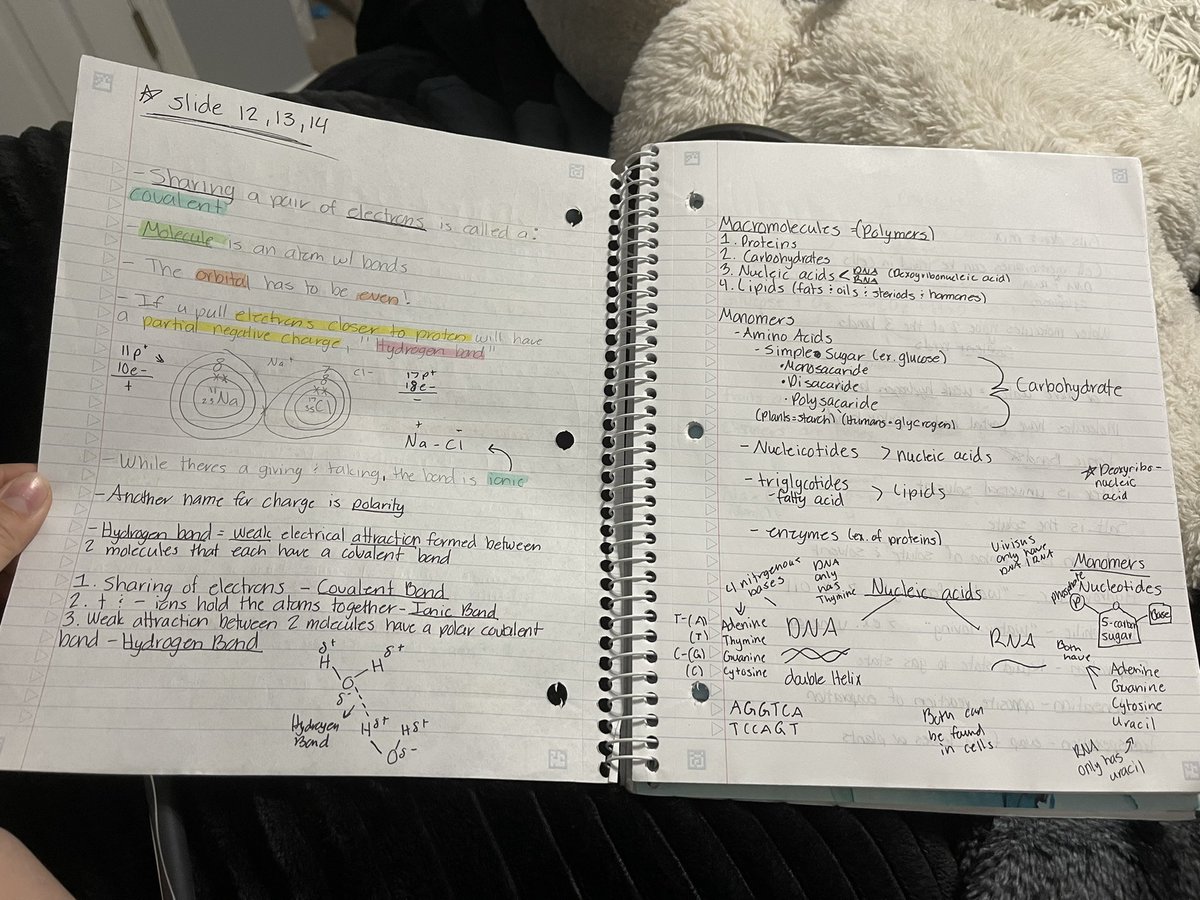 ☆ slide 12, 13, 14
- Sharing a pair of electrons is called a:
covalent
- Molecule is an atom w/ bonds
- The orbital has to be even!
- If u pull electrons closer to proton will have
a partial negative charge, "Hydrogen bond"
11p+
10e-
+
8
11
23 Na
Na+
7
8
17
35 Cl
Cl-
17p+
18e-
-
+ -
Na - Cl
- While theres a giving & taking, the bond is ionic
- Another name for charge is polarity
- Hydrogen bond = weak electrical attraction formed between
2 molecules that each have a covalent bond
1. Sharing of electrons - Covalent Bond
2. + & - ions hold the atoms together - Ionic Bond
3. Weak attraction between 2 molecules have a polar covalent
bond - Hydrogen Bond
δ+ δ+
H H
O
δ-
Hydrogen
Bond
Hδ+ Hδ+
Oδ-
Macromolecules = (Polymers)
1. Proteins
2. Carbohydrates
3. Nucleic acids < DNA (Deoxyribonucleic acid)
RNA
4. Lipids (fats & oils & steriods & hormones)
Monomers
- Amino Acids
- Simple Sugar (ex. glucose)
• Monosacaride
• Disacaride
• Polysacaride
(plants = starch) (Humans = glycrogen)
} Carbohydrate
- Nucleicotides > nucleic acids
☆ Deoxyribo-
nucleic
acid
- triglycotides
- fatty acid
> Lipids
- enzymes (ex. of proteins)
4 nitrgenous
bases
DNA
only
has
Thymine
Nucleic acids
only have
Monomers
Nucleotides
phosphate
P
5-carbon
sugar
Base
T-(A) Adenine
(T) Thymine
C-(G) Guanine
(C) Cytosine
DNA
double Helix
RNA
Both
have
Adenine
Guanine
Cytosine
Uracil
AGGTCA
TCCAGT
Both can
be found
in cells
RNA
only has
uracil